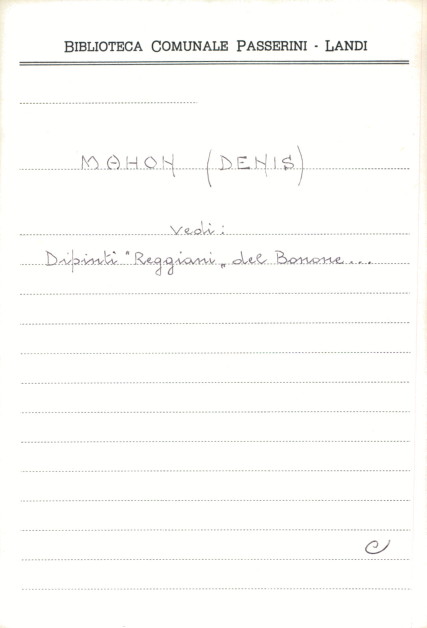 BIBLIOTECA COMUNALE PASSERINI - LANDI
MAHON (DENIS)
Vedi:
Dipinti "Reggiani„ del Bonone...
C